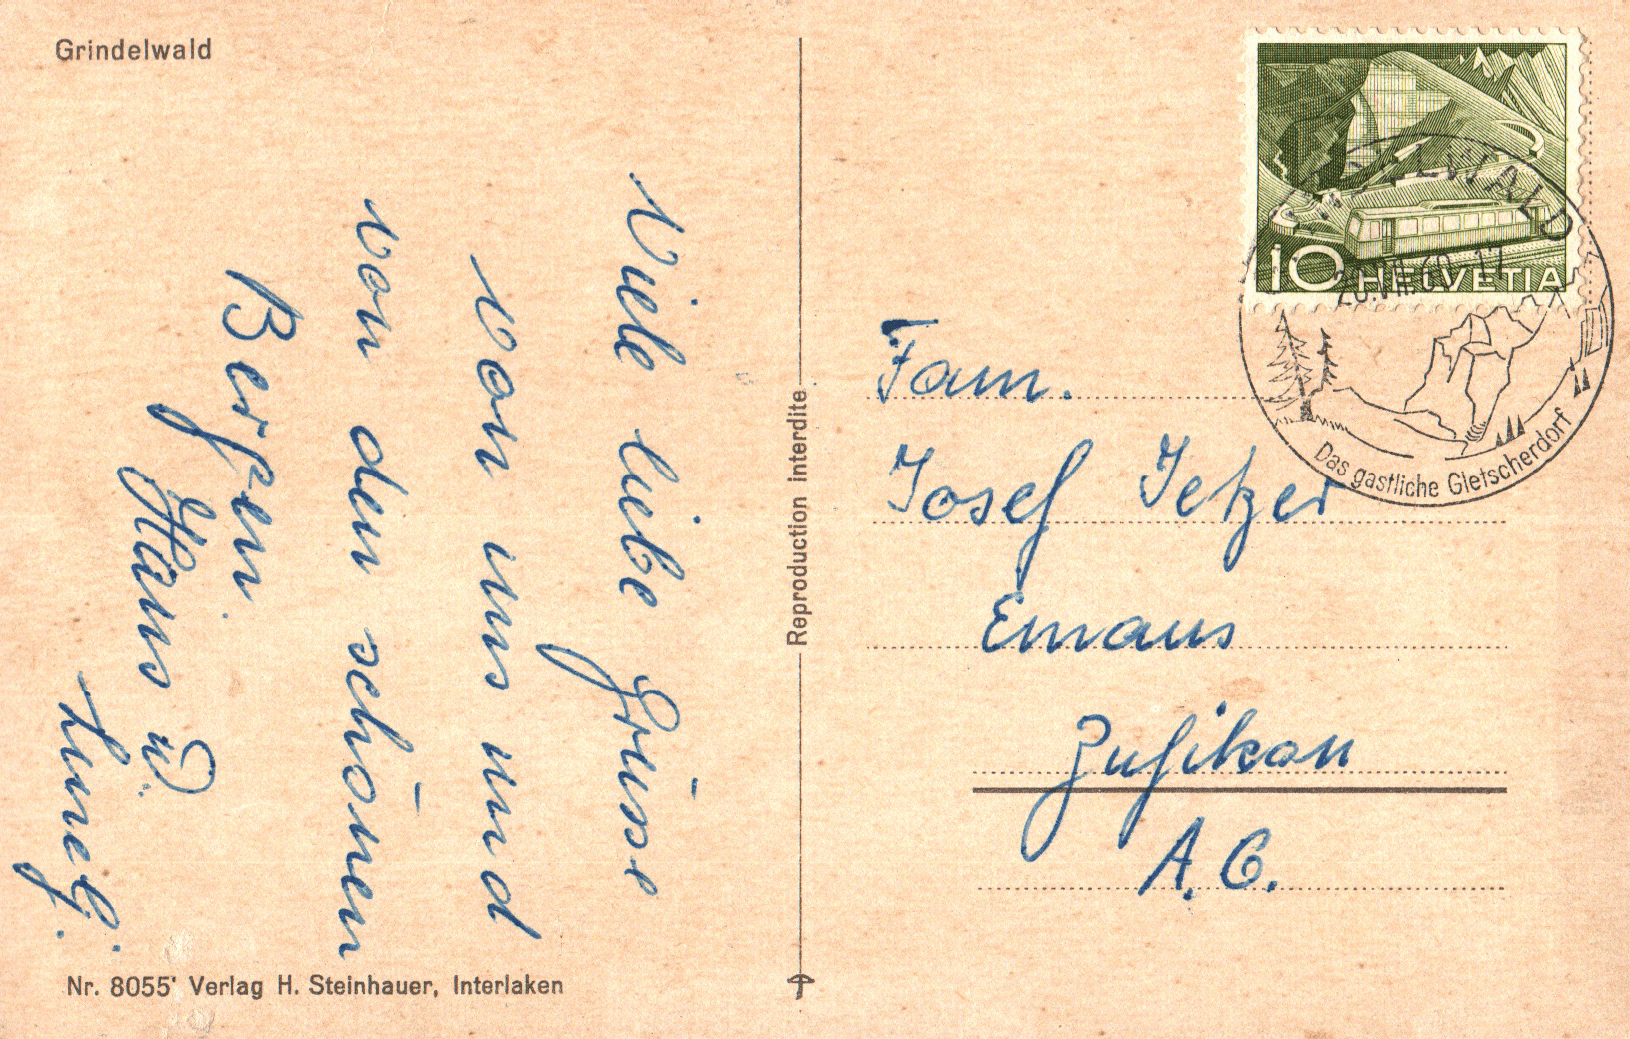 Grindelwald
Viele liebe Grüsse
von uns und
von den schönen
Bergen
Hans u.
Nr. 8055' Verlag H. Steinhauer, Interlaken
Reproduction interdite
10 HELVETIA
Das gastliche Gletscherdorf
Fam.
Josef Jetzer
Emaus
Zufikon
A.G.